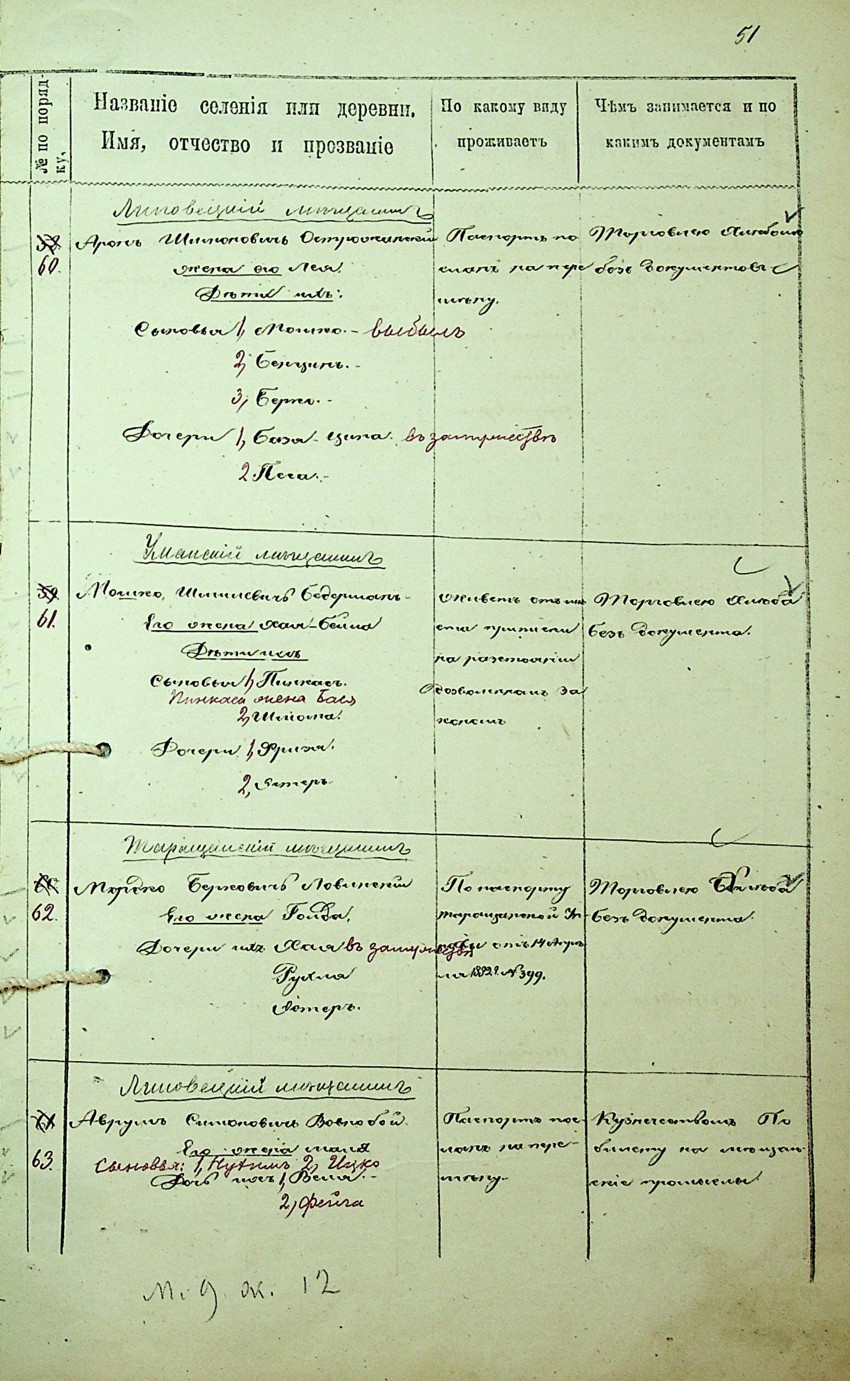 51
№ по поряд-
ку.
Названіе селенія или деревни.
Имя, отчество и прозваніе
По какому виду
проживаетъ
Чѣмъ занимается и по
какимъ документамъ
Липовецкій мѣщанинъ
60.
Аронъ Шлиомовичъ
жена его Лея.
Дѣти ихъ:
Сыновья 1, Мошко. - выбылъ
2, Бенціинъ. -
3, Берко. -
Дочери 1, База-Ципа. въ замужествѣ
2 Песа. -
Паспортъ по-
сланъ на пере
мѣну.
Торговлею хлѣбомъ
безъ документовъ
Уманскій мѣщанинъ
61.
Мошко, Бодерманъ-
Его жена Хая-Бейла
Дѣти ихъ
Сыновья 1, Пинхасъ.
Пинхаса жена Бася
2, Шлиома.
Дочери 1, Фрима.
2, Эстеръ
живетъ отъ мѣ
ста приписки
на разстояніи
дозволенномъ за
кономъ
Торговлею хлѣба
безъ документа.
Таращанскій мѣщанинъ
62.
Мордко Берковичъ Ловинскій
Его жена Гольда,
Дочери ихъ Хая въ замужествѣ
Рухля
Эстеръ.
По паспорту
таращанской Уп
равы отъ 14 Апрѣ
ля № 399.
Торговлею хлѣба
безъ документа.
Липовецкій мѣщанинъ
63.
Аврумъ Симоновичъ Вовкобой.
Его жена Маля
Сыновья: 1, Нухимъ 2, Ицко
Дочь ихъ 1, Веля. -
2, Фейга
Паспортъ пос-
ланъ на пере-
мѣну.
Кузнечествомъ По
билету на мѣщан-
скіе промыслы
м. 9 ж. 12